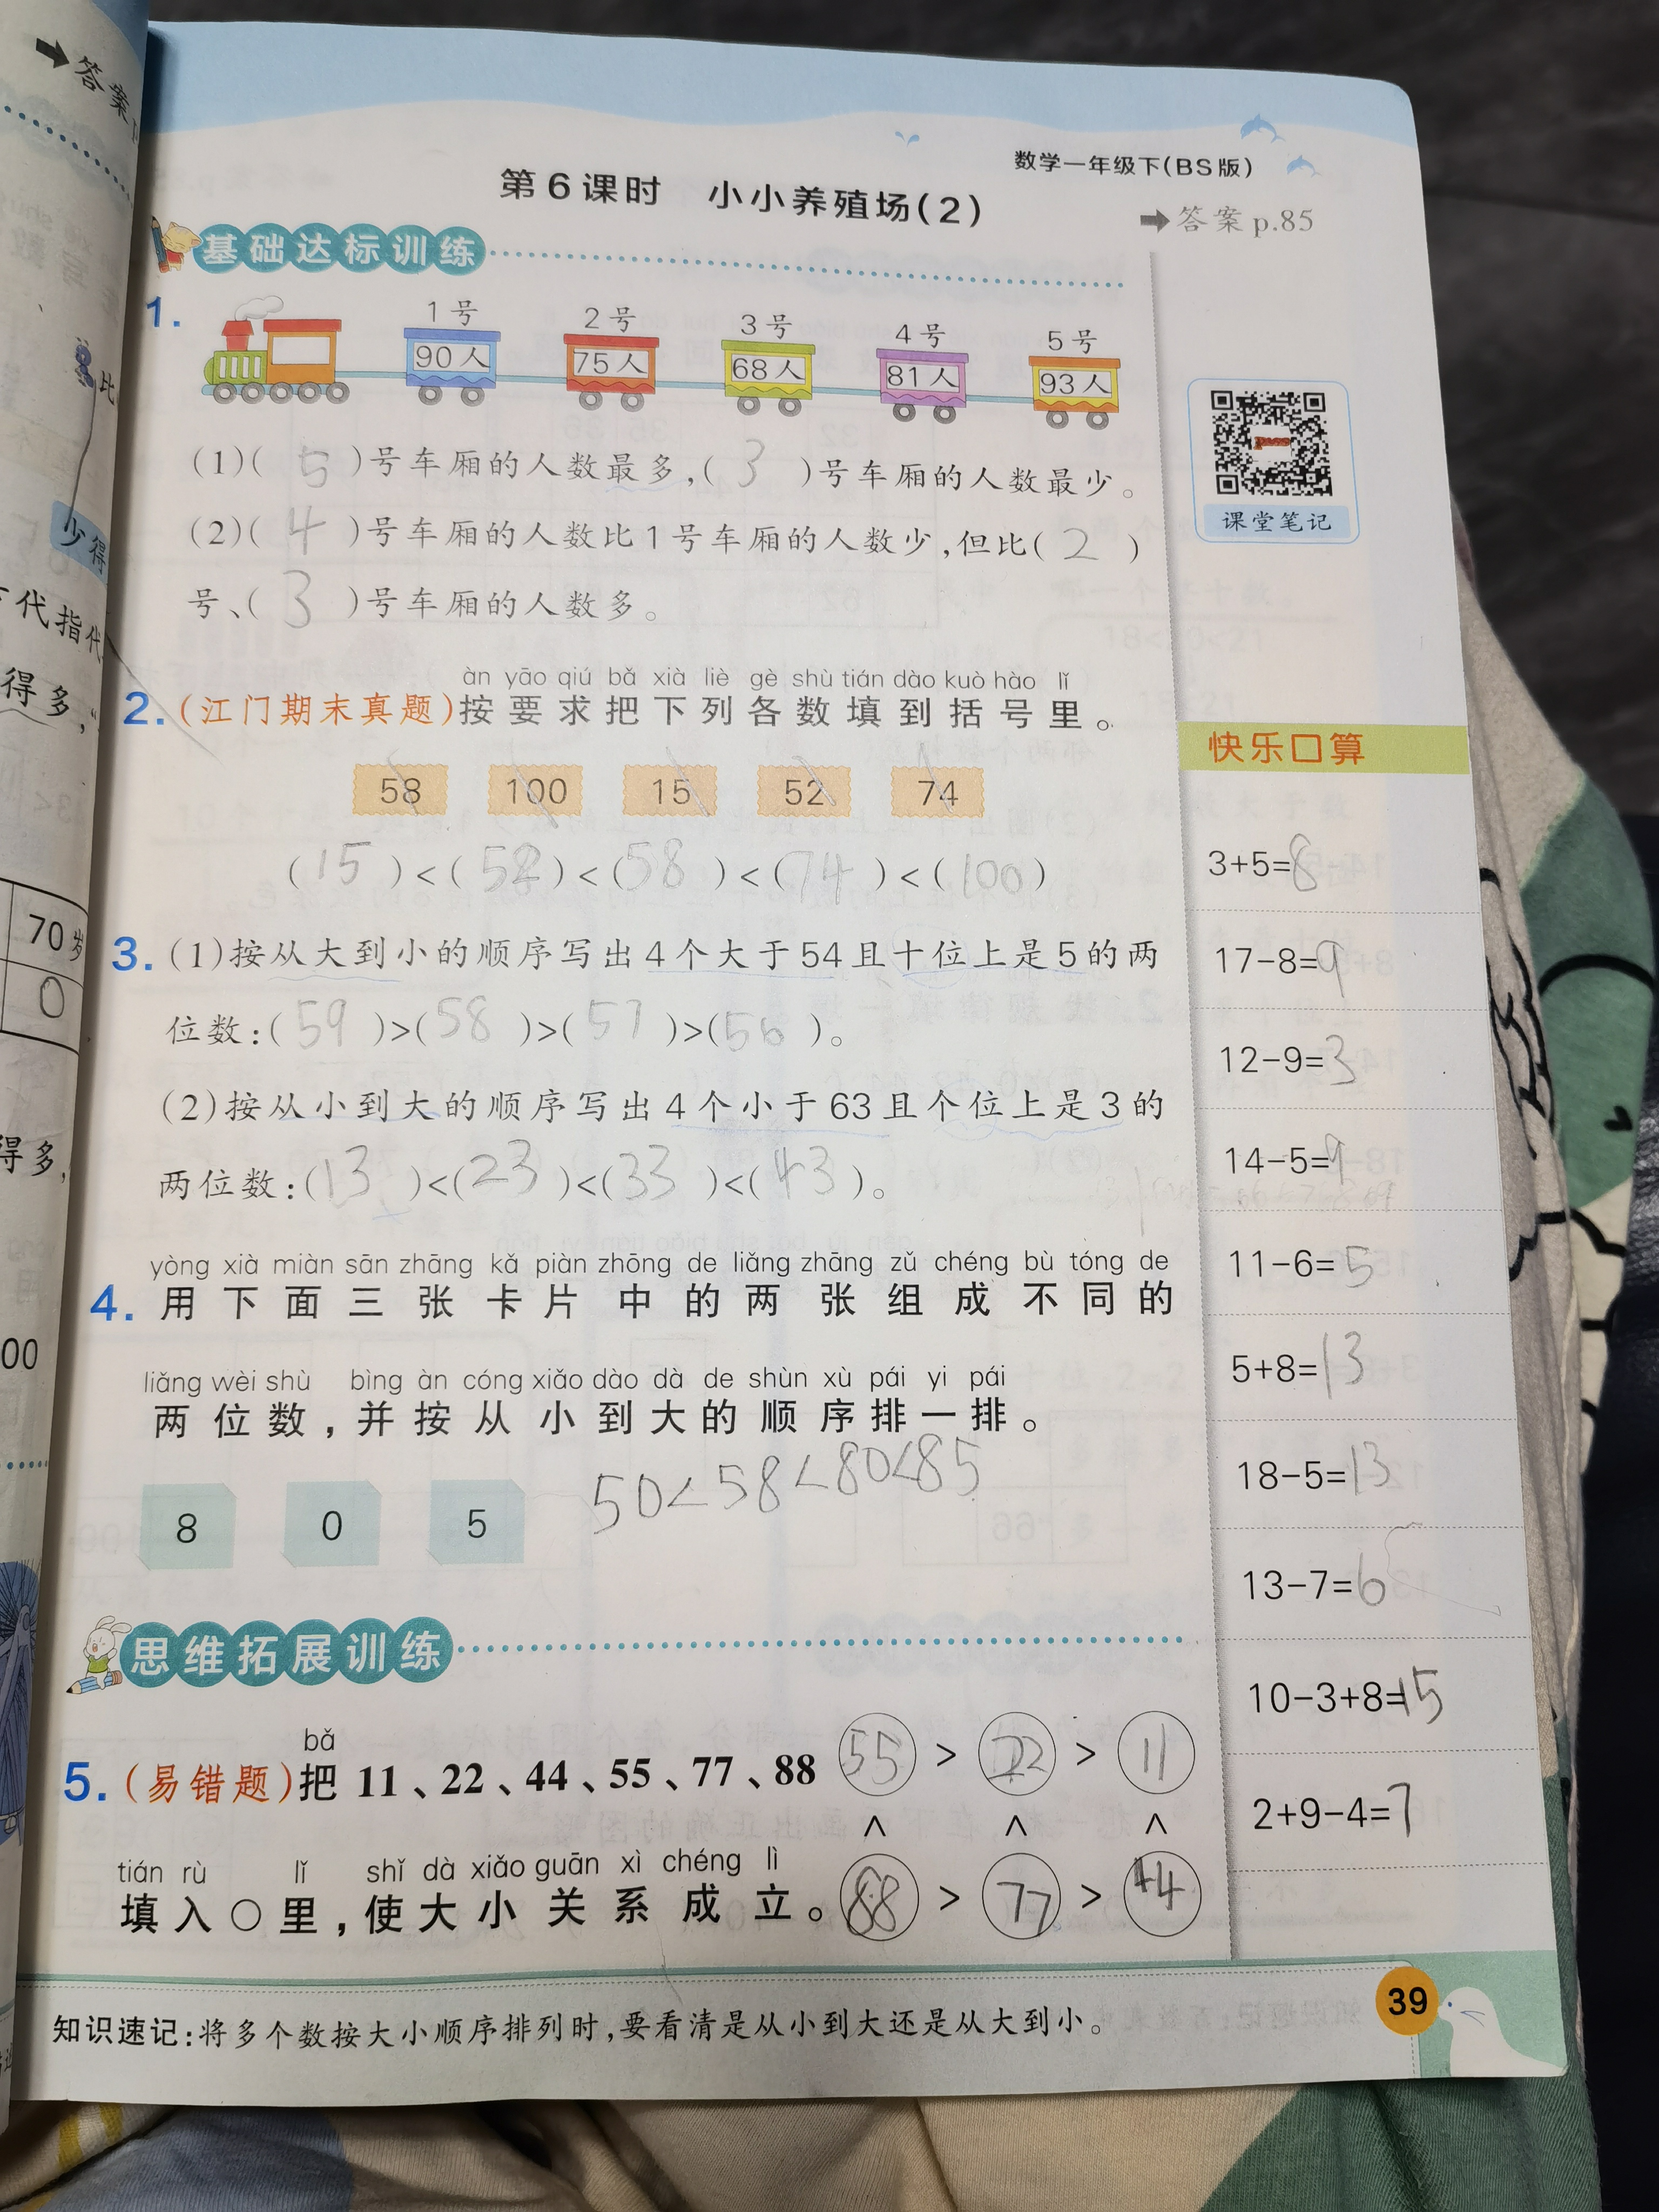 ➡答案
数学一年级下(BS版)
第6课时 小小养殖场(2)
➡答案 p.85
基础达标训练
1.
1号 2号 3号 4号 5号
90人 75人 68人 81人 93人
(1)( 5 )号车厢的人数最多,( 3 )号车厢的人数最少。
(2)( 4 )号车厢的人数比1号车厢的人数少,但比( 2 )
号、( 3 )号车厢的人数多。
课堂笔记
àn yāo qiú bǎ xià liè gè shù tián dào kuò hào lǐ
2.(江门期末真题)按要求把下列各数填到括号里。
58 100 15 52 74
(15)<(52)<(58)<(74)<(100)
3.(1)按从大到小的顺序写出4个大于54且十位上是5的两
位数:(59)>(58)>(57)>(56)。
(2)按从小到大的顺序写出4个小于63且个位上是3的
两位数:(13)<(23)<(33)<(43)。
yòng xià miàn sān zhāng kǎ piàn zhōng de liǎng zhāng zǔ chéng bù tóng de
4.用下面三张卡片中的两张组成不同的
liǎng wèi shù bìng àn cóng xiǎo dào dà de shùn xù pái yi pái
两位数,并按从小到大的顺序排一排。
8 0 5
50<58<80<85
思维拓展训练
bǎ
5.(易错题)把 11、22、44、55、77、88
tián rù lǐ shǐ dà xiǎo guān xì chéng lì
填入○里,使大小关系成立。
55 > 22 > 11
∧ ∧ ∧
88 > 77 > 44
知识速记:将多个数按大小顺序排列时,要看清是从小到大还是从大到小。
39
快乐口算
3+5=8
17-8=9
12-9=3
14-5=9
11-6=5
5+8=13
18-5=13
13-7=6
10-3+8=15
2+9-4=7
比
少得
代指代
得多,
70岁
0
得多,
00